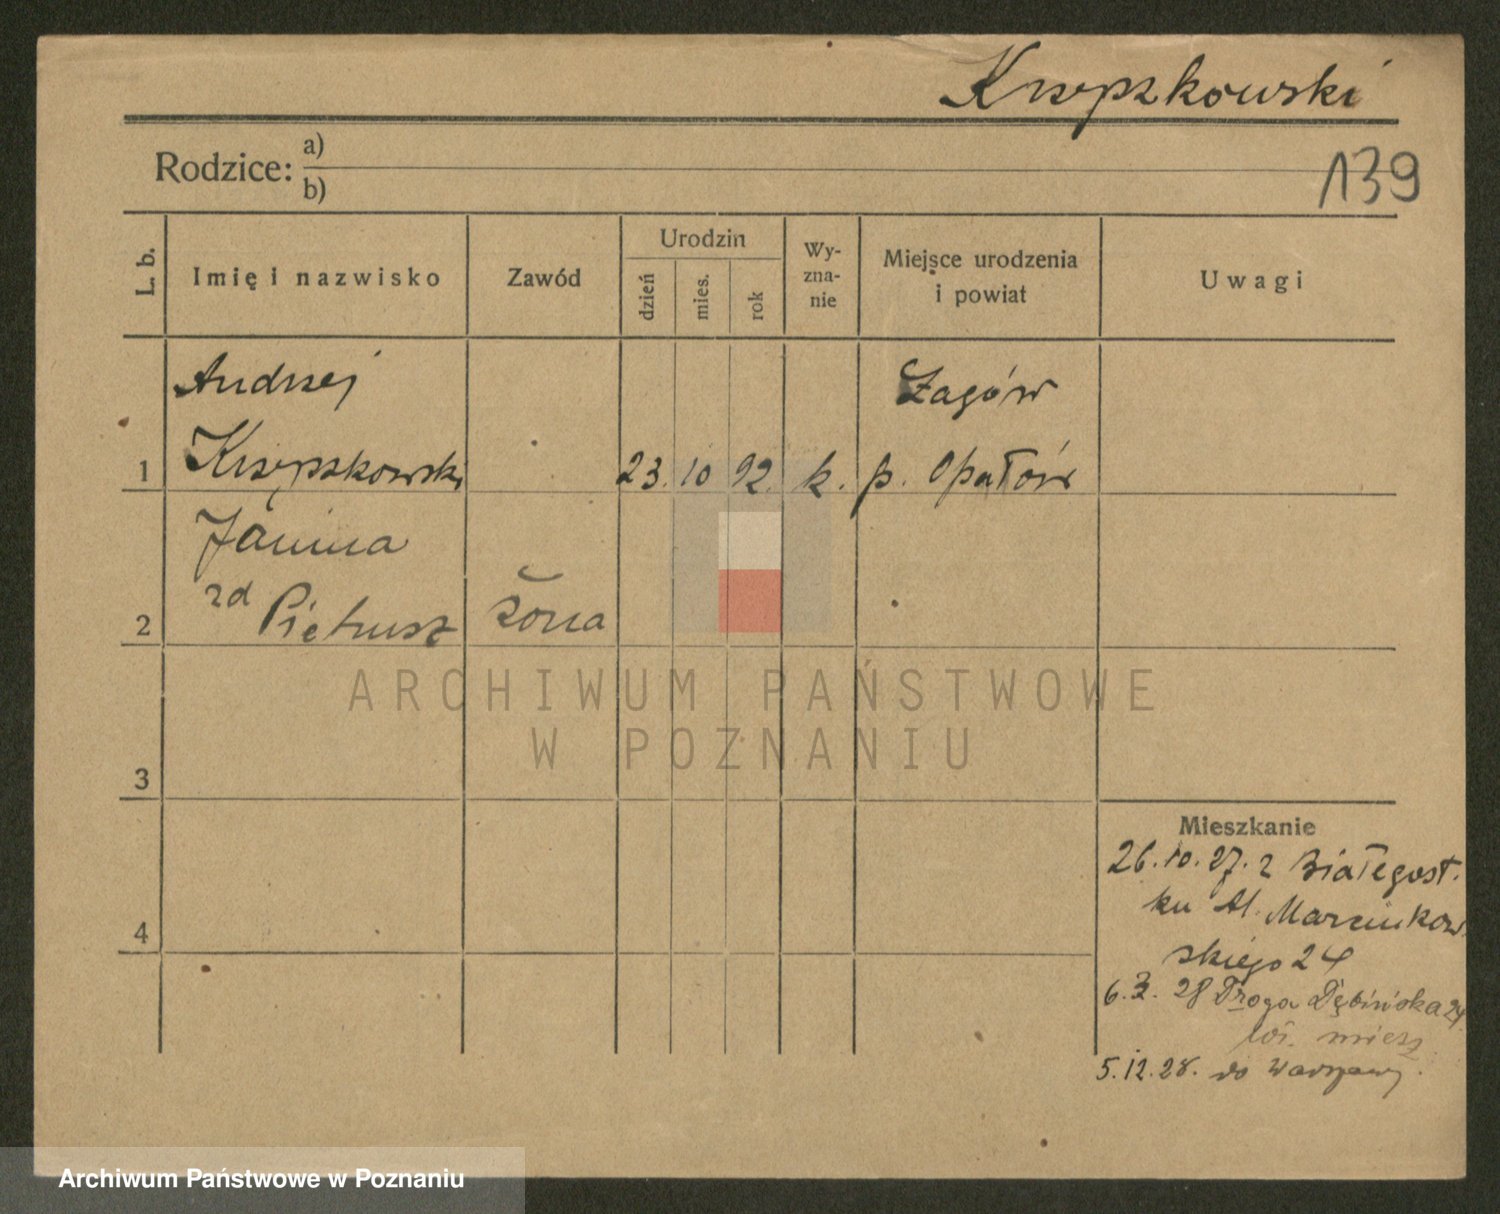 Krzępszkowski
139
Rodzice: a)
b)
L. b.
Imię i nazwisko
Zawód
Urodzin
dzień
mies.
rok
Wy-
zna-
nie
Miejsce urodzenia
i powiat
Uwagi
Andrzej
Łagów
1 Krzępszkowski 23. 10 92. k. p. Opatów
Janina
zd
2 Pietrusz żona
ARCHIWUM PAŃSTWOWE
W POZNANIU
3
4
Mieszkanie
26.10.27. z Białegost.
ku Al. Marcinkow
skiego 24
6.3.28 Droga Dębińska 24
wł. miesz
5.12.28. do Warszawy.
Archiwum Państwowe w Poznaniu